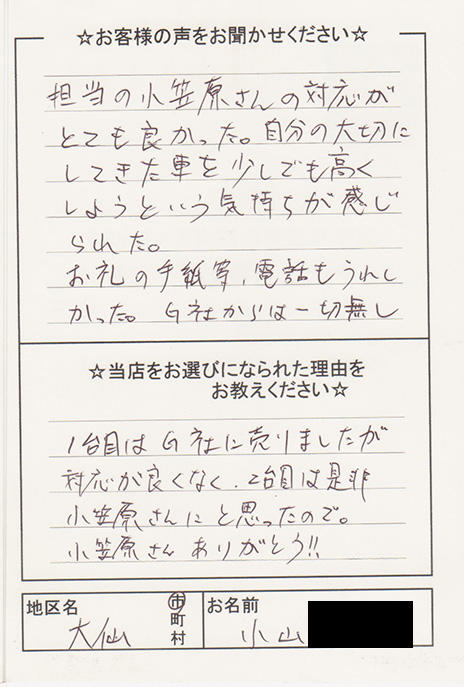 ☆お客様の声をお聞かせください☆
担当の小笠原さんの対応が
とても良かった。自分の大切に
してきた車を少しでも高く
しようという気持ちが感じ
られた。
お礼の手紙等、電話もうれし
かった。G社からは一切無し
☆当店をお選びになられた理由を
お教えください☆
1台目はG社に売りましたが
対応が良くなく、2台目は是非
小笠原さんにと思ったので。
小笠原さんありがとう!!
地区名
大仙
市
町
村
お名前
小山